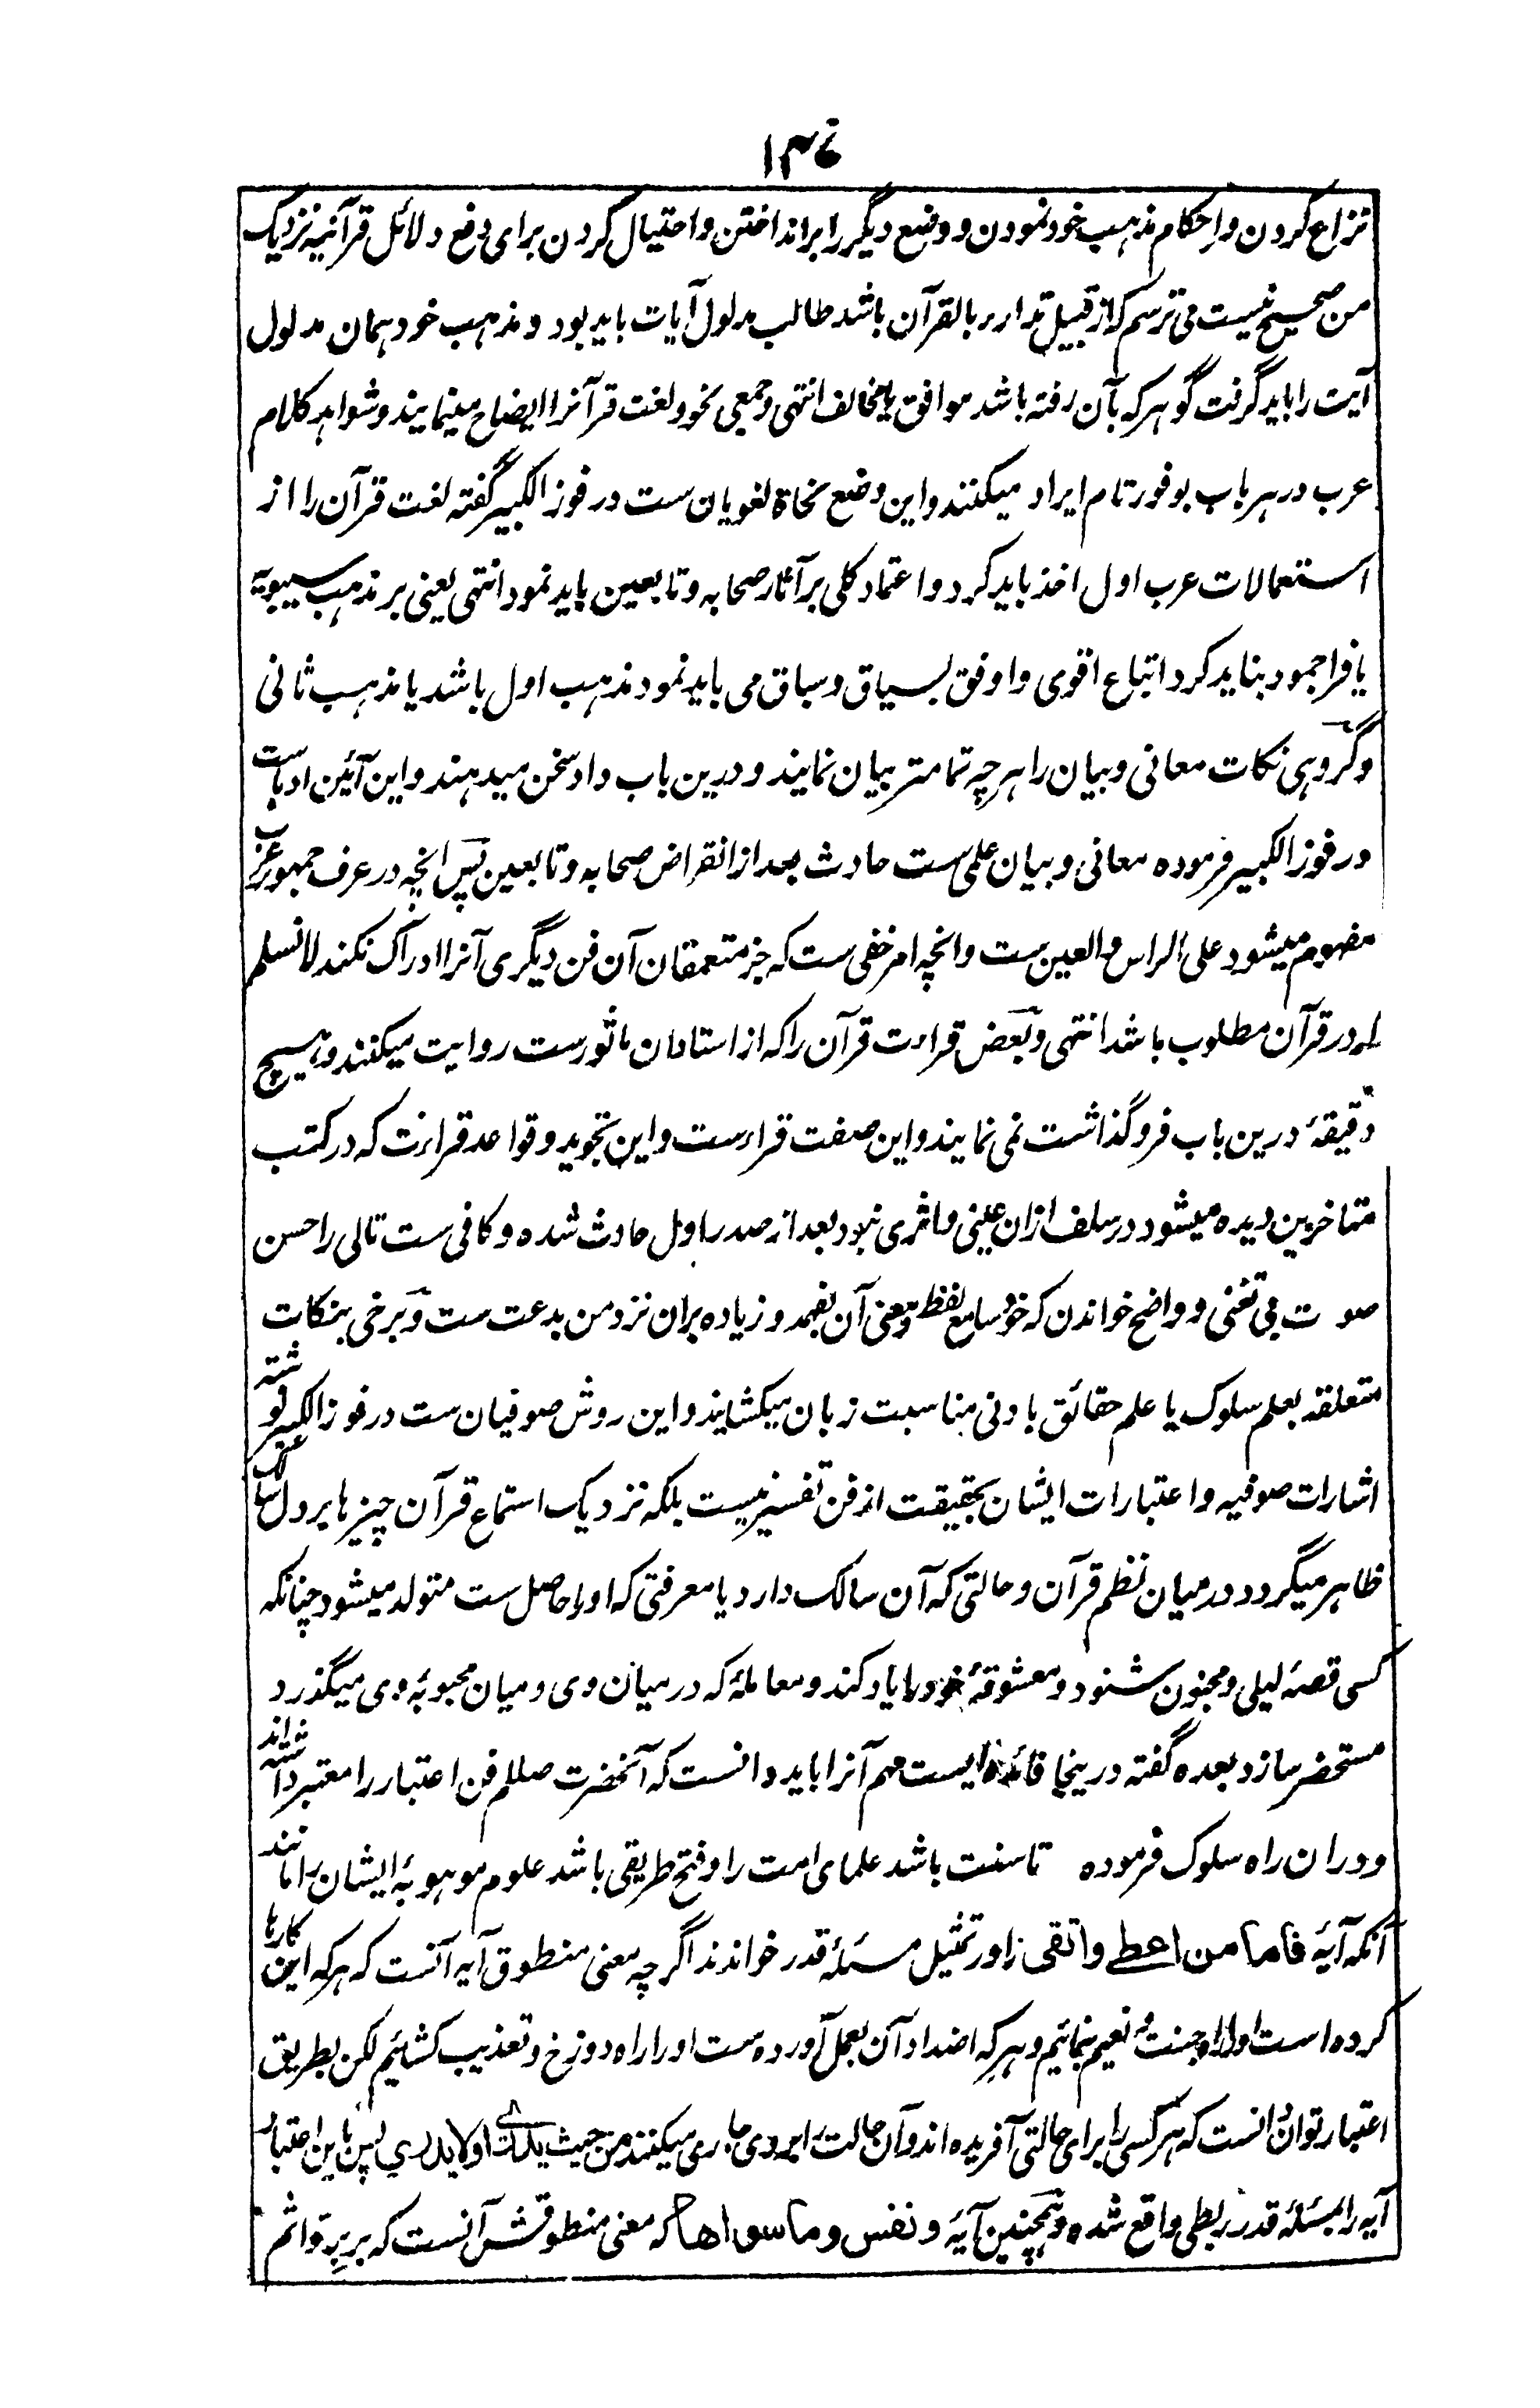 ۱۳۶
نزاع کردن و احکام مذهب خود نمودن و وضع دیگر را برانداختن و احتیال کردن برای دفع دلائل قرآنیه نزدیک
من صحیح نیست می ترسم که از قبیل تدارء بالقرآن باشد طالب مدلول آیات باید بود و مذهب خود همان مدلول
آیت را باید گرفت گو هر که بآن رفته باشد موافق یا مخالف انتهی و جمعی نحو و لغت قرآنرا ایضاح مینمایند و شواهد کلام
عرب در هر باب بوفور تام ایراد میکنند و این وضع نحاة لغویان ست در فوز الکبیر گفته لغت قرآن را از
استعمالات عرب اول اخذ باید کرد و اعتماد کلی بر آثار صحابه و تابعین باید نمود انتهی یعنی بر مذهب سیبویه
یا فرا جمود بناید کرد اتباع اقوی و اوفق بسیاق و سباق می باید نمود مذهب اول باشد یا مذهب ثانی
و گروهی نکات معانی و بیان را هر چه تمامتر بیان نمایند و درین باب داد سخن میدهند و این آئین ادباست
در فوز الکبیر فرموده معانی و بیان علمی ست حادث بعد از انقراض صحابه و تابعین پس انچه در عرف جمهور عرب
مفهوم میشود علی الراس و العین ست و انچه امر خفی ست که جز متعمقان آن فن دیگری آنرا ادراک نکند لا نسلم
که در قرآن مطلوب باشد انتهی و بعض قراءت قرآن را که از استادان ماثورست روایت میکنند و هیچ
دقیقهٔ درین باب فروگذاشت نمی نمایند و این صفت قراءست و این تجوید و قواعد قراءت که در کتب
متاخرین دیده میشود در سلف ازان عینی و اثری نبود بعد از صدر اول حادث شده و کافی ست تالی را حسن
صوت بی تغنی و واضح خواندن که خود و سامع لفظ و معنی آن بفهمد و زیاده بران نزد من بدعت ست و برخی بنکات
متعلقه بعلم سلوک یا علم حقائق بادنی مناسبت زبان میکشایند و این روش صوفیان ست در فوز الکبیر نوشته
اشارات صوفیه و اعتبارات ایشان بحقیقت از فن تفسیر نیست بلکه نزدیک استماع قرآن چیزها بر دل سالک
ظاهر میگردد در میان نظم قرآن و حالتی که آن سالک دارد یا معرفتی که او را حاصل ست متولد میشود چنانکه
کسی قصهٔ لیلی و مجنون شنود و معشوقهٔ خود را یاد کند و معاملهٔ که در میان وی و میان محبوبهٔ وی میگذرد
مستحضر سازد بعده گفته درینجا فائده ایست مهم آنرا باید دانست که آنحضرت صللم فن اعتبار را معتبر داشته اند
و دران راه سلوک فرموده تا سنت باشد علمای امت را و فتح طریقی باشد علوم موهوبهٔ ایشان را مانند
آنکه آیهٔ فاما من اعطی و اتقی را در تمثیل مسئلهٔ قدر خواندند اگرچه معنی منطوق آیه آنست که هر که این کارها
کرده است او را راه جنت و نعیم بنمائیم و هر که اضداد آن بعمل آورده ست او را راه دوزخ و تعذیب کشائیم لکن بطریق
اعتبار توان دانست که هر کسی را برای حالتی آفریده اند و آن حالت را بر وی جاری میکنند من حیث یدری او لا یدری پس باین اعتبار
آیه را بمسئلهٔ قدر ربطی واقع شده و همچنین آیهٔ و نفس و ما سواها که معنی منطوقش آنست که بر بر و اثم